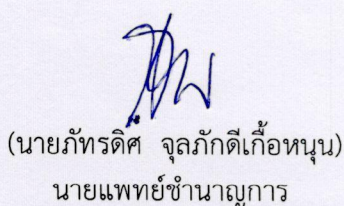 (นายภัทรดิศ จุลภักดีเกื้อหนุน)
นายแพทย์ชำนาญการ